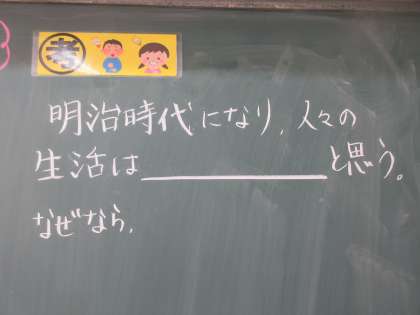 考
明治時代になり、人々の
生活は__________と思う。
なぜなら、